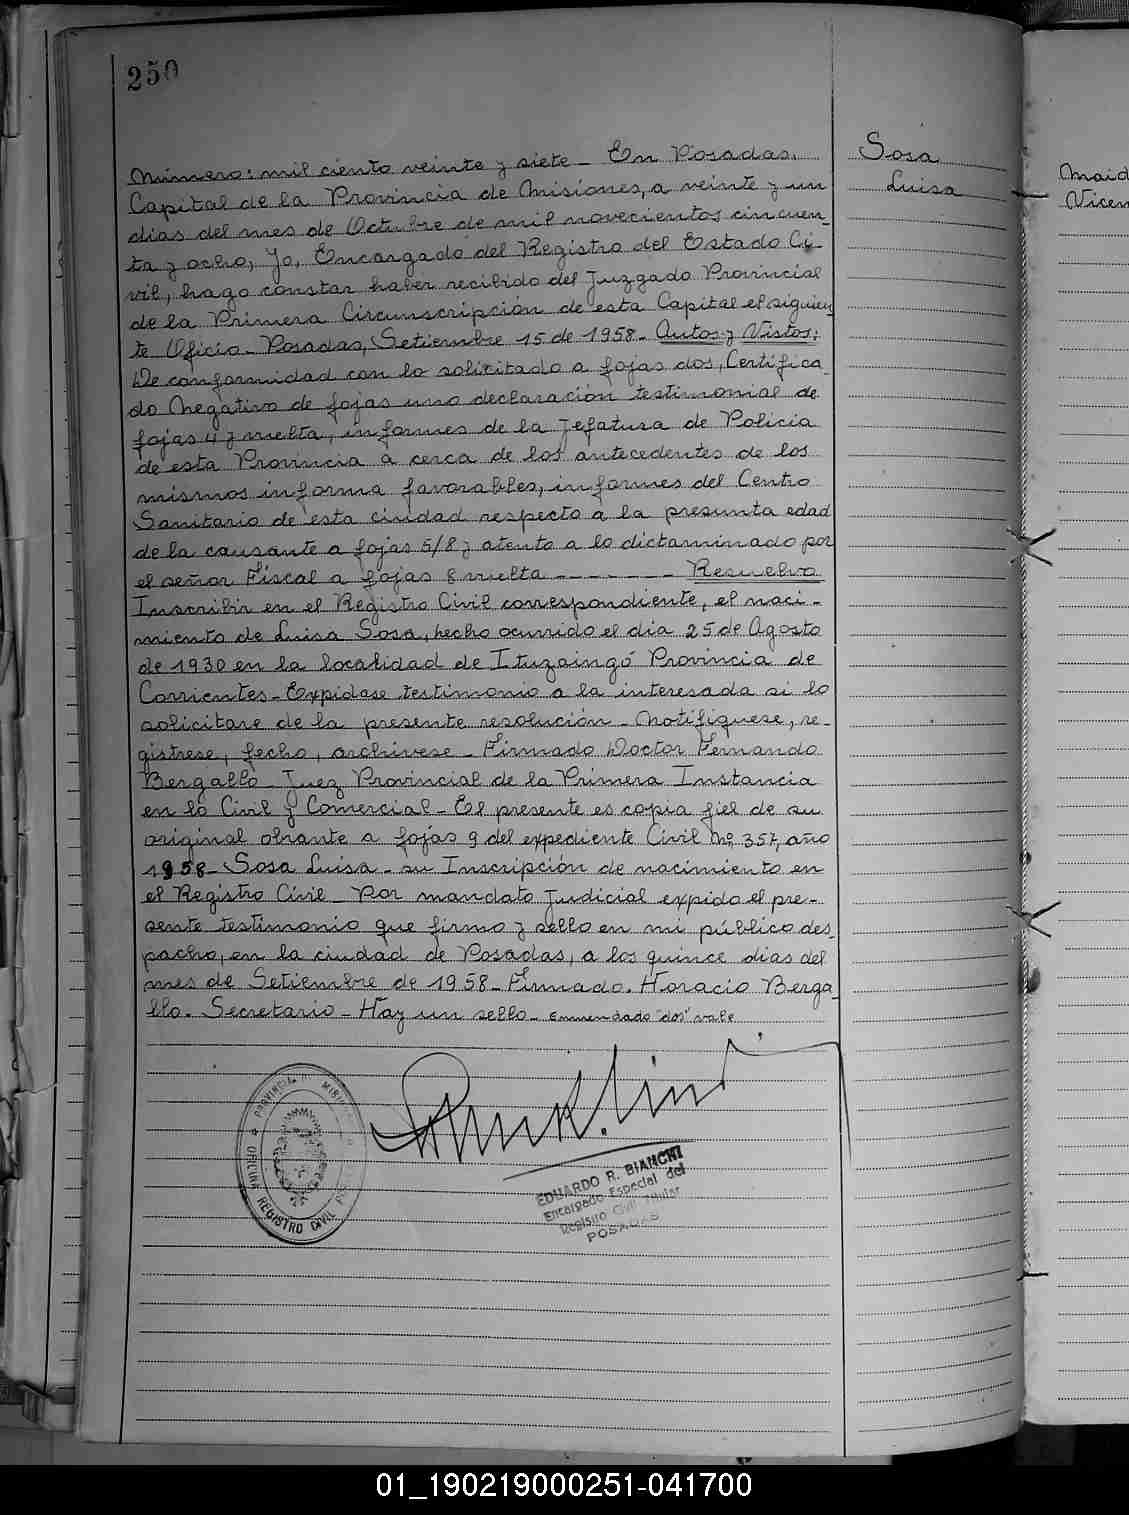 250
Número: mil ciento veinte y siete - En Posadas,
Capital de la Provincia de Misiones, a veinte y un
dias del mes de Octubre de mil novecientos cincuen-
ta y ocho, Yo, Encargado del Registro del Estado Ci-
vil, hago constar haber recibido del Juzgado Provincial
de la Primera Circunscripción de esta Capital el siguien-
te Oficio - Posadas, Setiembre 15 de 1958 - Autos y Vistos:
De conformidad con lo solicitado a fojas dos, Certifica-
do Negativo de fojas uno declaración testimonial de
fojas 4 y vuelta, informes de la Jefatura de Policia
de esta Provincia a cerca de los antecedentes de los
mismos informa favorables, informes del Centro
Sanitario de esta ciudad respecto a la presunta edad
de la causante a fojas 5/8 y atento a lo dictaminado por
el señor Fiscal a fojas 8 vuelta - - - - - - - Resuelvo
Inscribir en el Registro Civil correspondiente, el naci-
miento de Luisa Sosa, hecho ocurrido el dia 25 de Agosto
de 1930 en la localidad de Ituzaingó Provincia de
Corrientes - Expidase testimonio a la interesada si lo
solicitare de la presente resolución - Notifiquese, re-
gistrese, fecho, archivese - Firmado Doctor Fernando
Bergallo - Juez Provincial de la Primera Instancia
en lo Civil y Comercial - El presente es copia fiel de su
original obrante a fojas 9 del expediente Civil Nº 357, año
1958 - Sosa Luisa - su Inscripción de nacimiento en
el Registro Civil - Por mandato Judicial expido el pre-
sente testimonio que firmo y sello en mi público des-
pacho, en la ciudad de Posadas, a los quince dias del
mes de Setiembre de 1958 - Firmado. Horacio Berga-
llo. Secretario - Hay un sello - Enmendado "dos" vale
Sosa
Luisa
Maid
Vicen
PROVINCIA DE MISIONES
OFICINA REGISTRO CIVIL
EDUARDO R. BIANCHI
Encargado Especial del
Registro Civil Titular
POSADAS
01_190219000251-041700